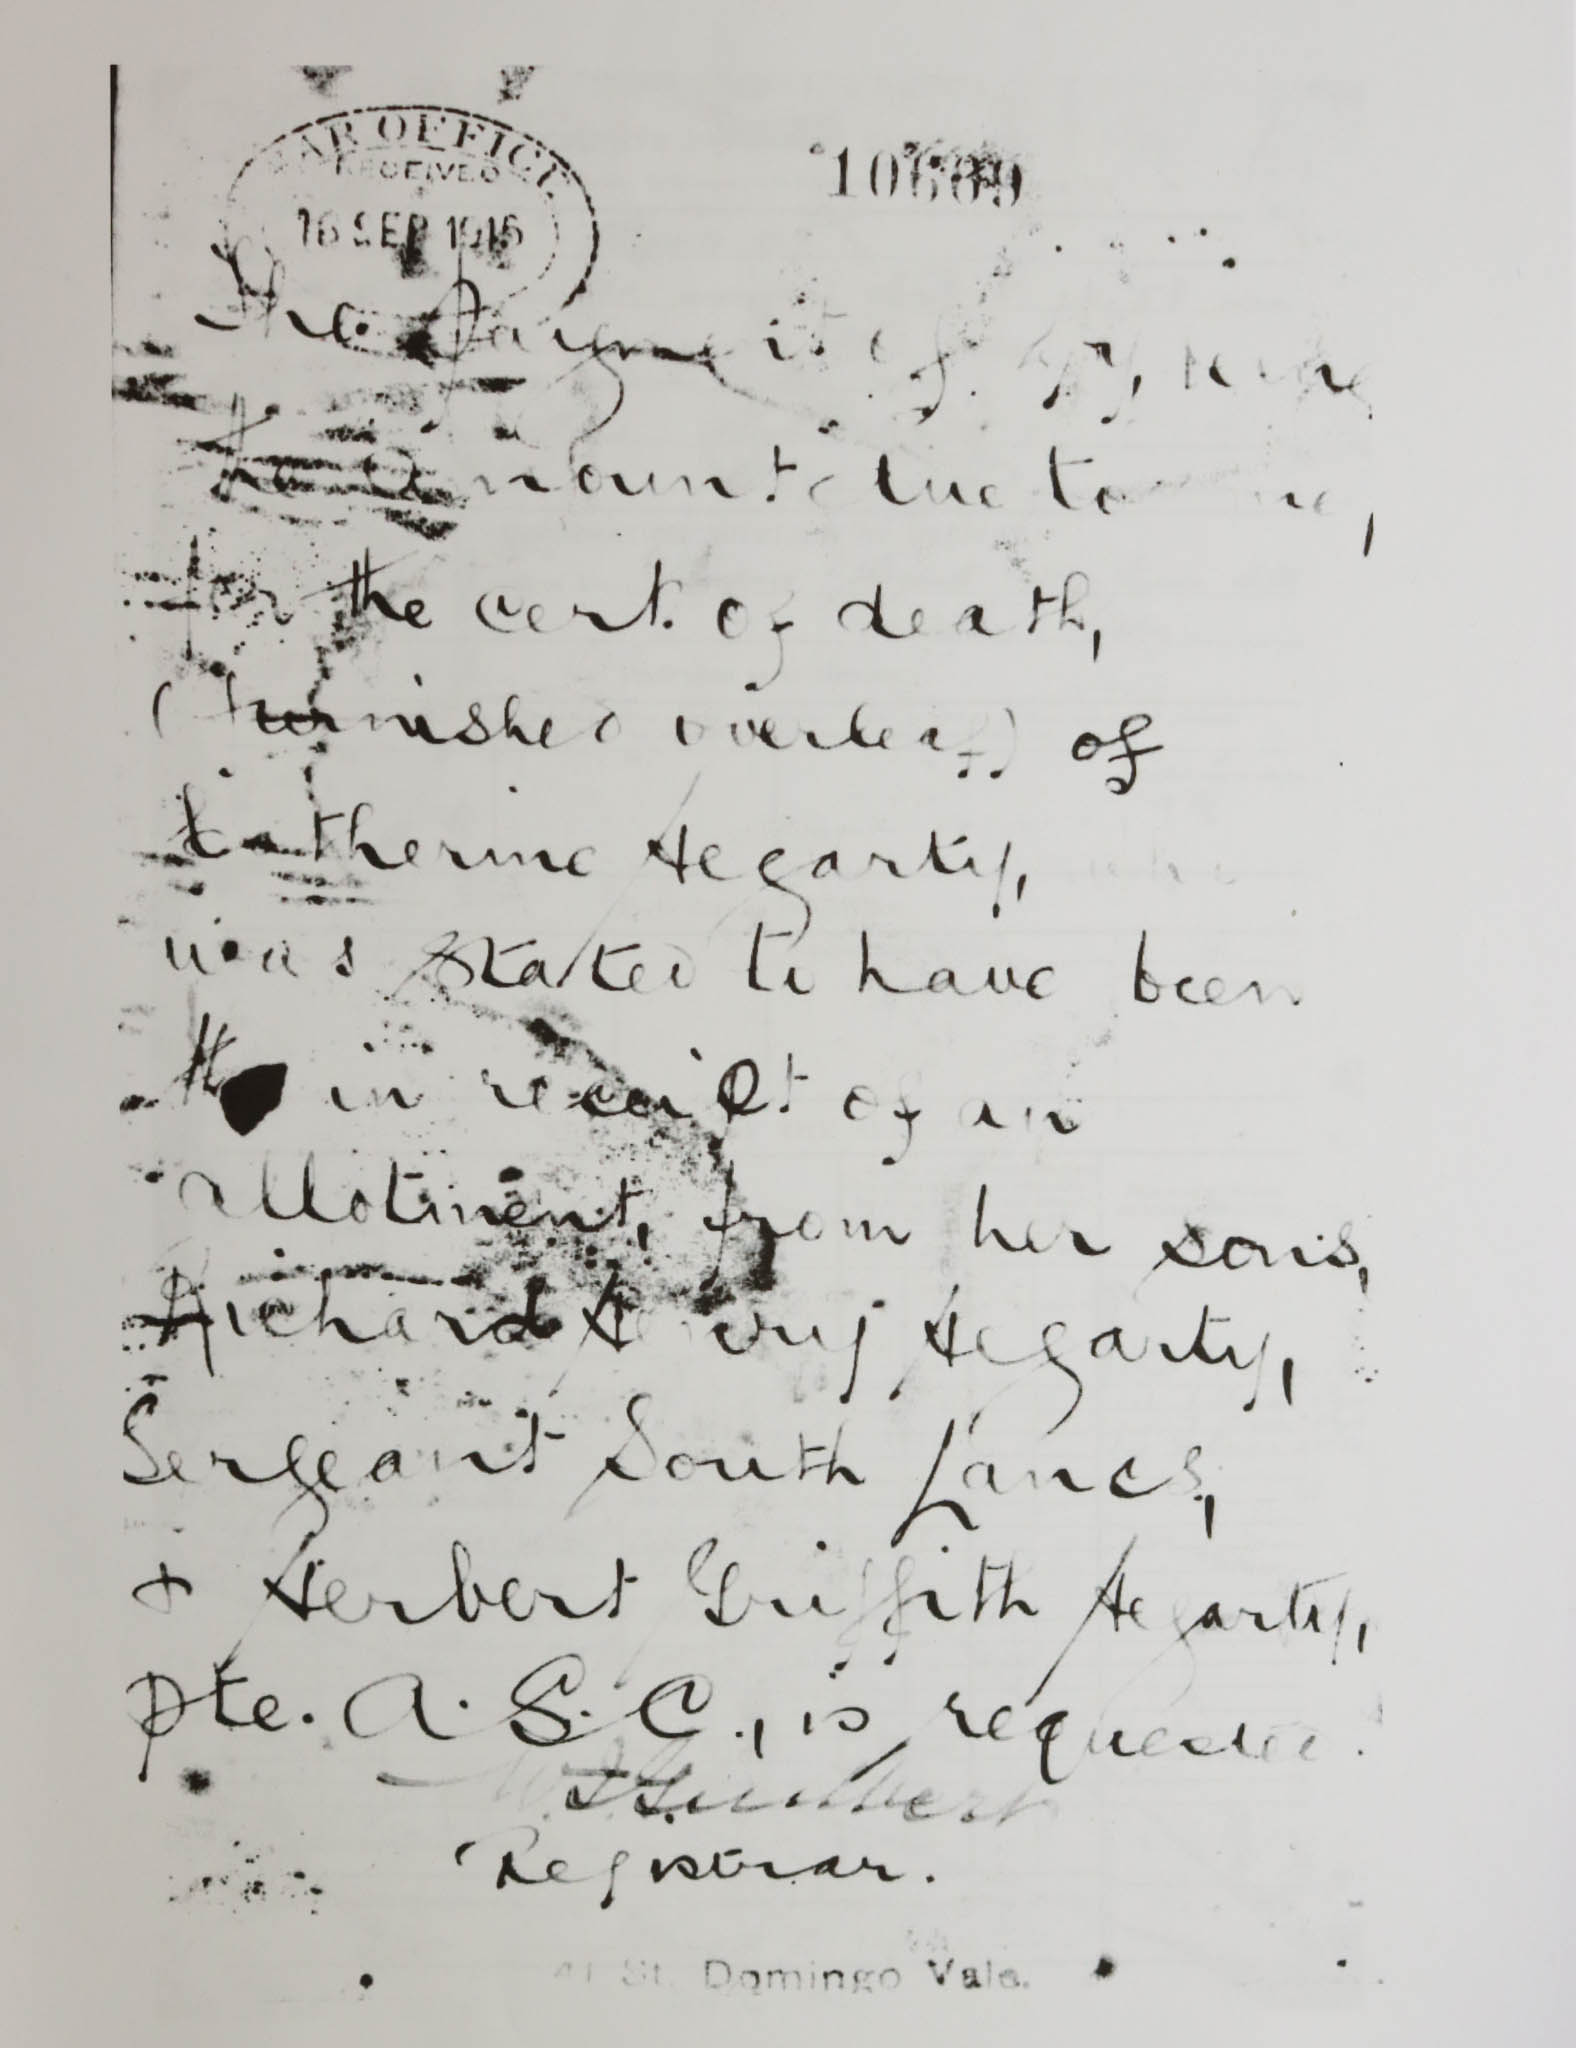 WAR OFFICE
RECEIVED
16 SEP 1916
10689
The Payment of
the amount due to me,
for the cert. of death,
(furnished overleaf) of
Katherine Hegarty, who
was stated to have been
in receipt of an
allotment, from her sons,
Richard Henry Hegarty,
Sergeant South Lancs,
+ Herbert Griffith Hegarty,
pte. A.S.C., is requested.
Registrar.
41 St. Domingo Vale.